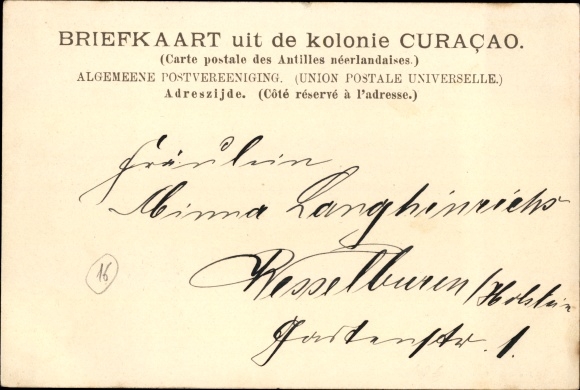 BRIEFKAART uit de kolonie CURAÇAO.
(Carte postale des Antilles néerlandaises.)
ALGEMEENE POSTVEREENIGING. (UNION POSTALE UNIVERSELLE.)
Adreszijde. (Côté réservé à l'adresse.)
Fräulein
Minna Langhinrichs
16
Wesselburen/Holstein
Gartenstr. 1.